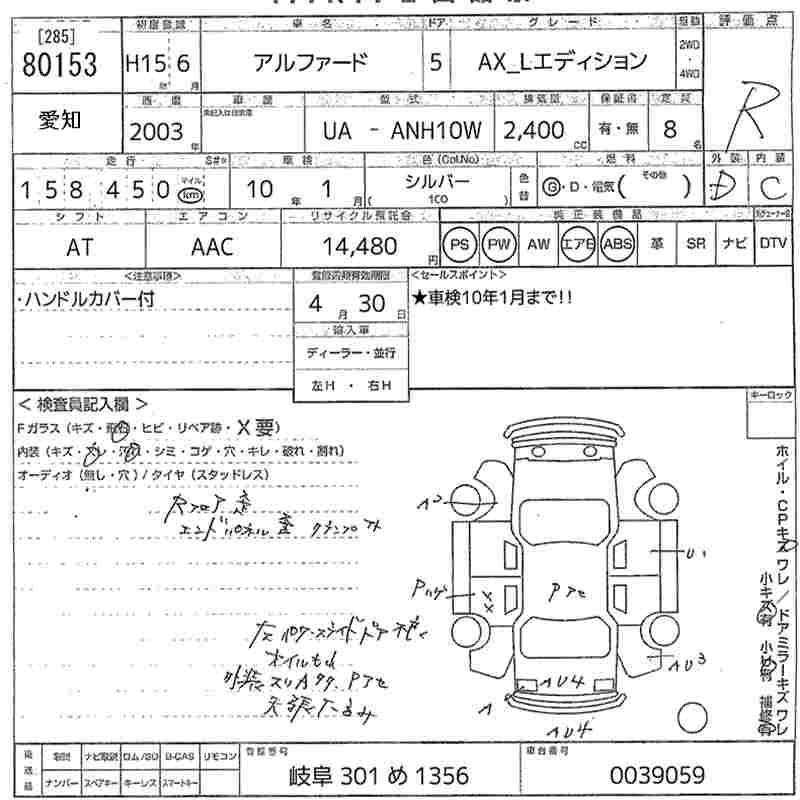 [285]
80153
初度登録 車名 ドア グレード 駆動 評価点
H15 6 月 アルファード 5 AX_Lエディション 2WD・4WD
R
愛知
車歴 型式 排気量 保証書 定員
2003 年 UA - ANH10W 2,400 CC 有・無 8 名
走行 車検 色(Col.No) 燃料 外装 内装
158450 マイル km 10 年 1 月 シルバー 100 色替 G・D・電気( その他 ) D C
シフト エアコン リサイクル預託金 純正装備品
AT AAC 14,480 円 PS PW AW エアB ABS 革 SR ナビ DTV
<注意事項> 登録書類有効期限 <セールスポイント>
・ハンドルカバー付 4 月 30 日 ★車検10年1月まで!!
輸入車
ディーラー・並行
左H ・ 右H
キーロック
< 検査員記入欄 >
Fガラス (キズ・飛石・ヒビ・リペア跡・X要)
内装 (キズ・スレ・汚れ・シミ・コゲ・穴・キレ・破れ・割れ)
オーディオ (無し・穴) / タイヤ (スタッドレス)
Rフロア歪
エンドパネル歪
オイルもれ
天張たるみ
A2
U1
Pハゲ
Pアセ
AU3
AU4
A
AU4
ホイル・CPキズ ワレ / ドアミラーキズ ワレ
小キズ有 小凹有 補修有
後送品 取説 ナビ取説 ロム/SD B-CAS リモコン
ナンバー スペアキー キーレス スマートキー
登録番号 車台番号
岐阜 301 め 1356 0039059